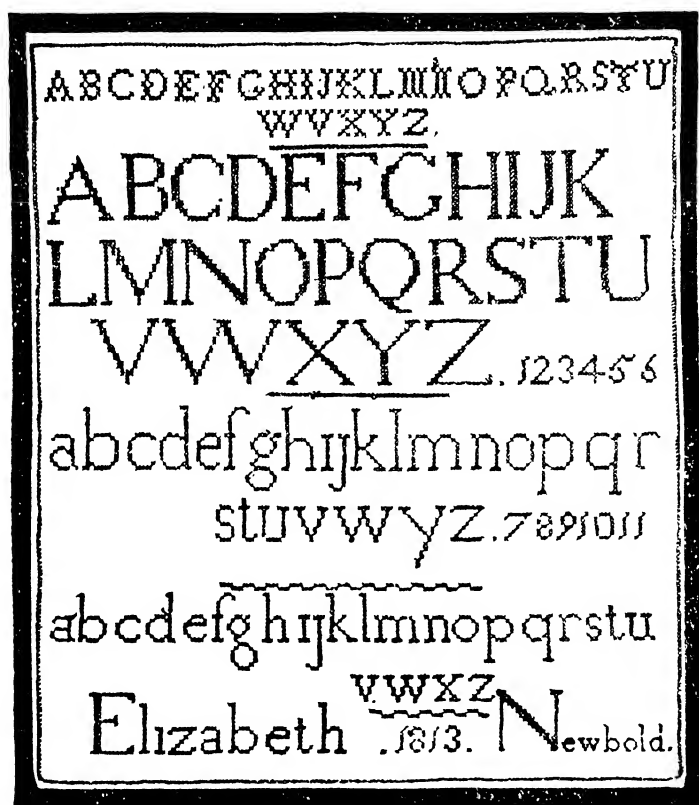 ABCDEFGHIJKLMNOPQRSTU
WVXYZ.
ABCDEFGHIJK
LMNOPQRSTU
VWXYZ. 123456
abcdefghijklmnopqr
stuvwyz. 7891011
abcdefghijklmnopqrstu
vwxz
Elizabeth .1813. Newbold.